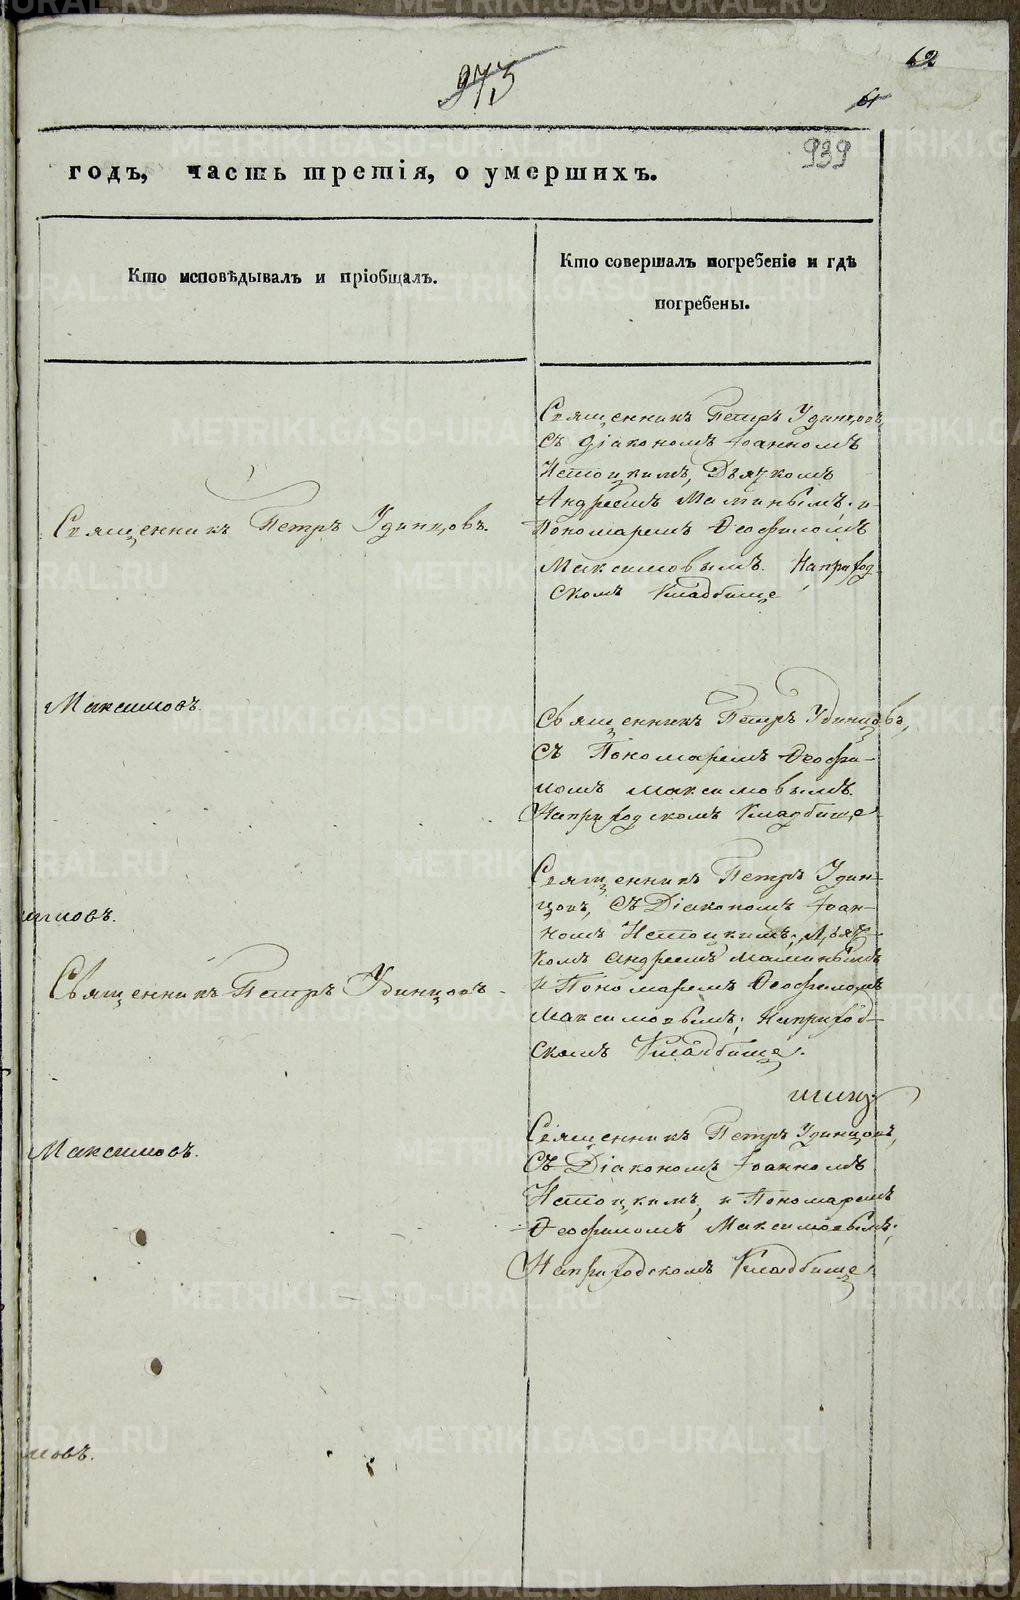 973
62
61
939
годъ, часть третія, о умершихъ.
Кто исповѣдывалъ и пріобщалъ.
Кто совершалъ погребеніе и гдѣ
погребены.
Священникъ Петръ Удинцовъ.
Священникъ Петръ Удинцовъ,
съ діакономъ Іоанномъ
Дьячкомъ
Андреемъ Маминымъ и
Пономаремъ Ѳеофиломъ
Максимовымъ. На приход-
скомъ Кладбище
Максимовъ.
Священникъ Петръ Удинцовъ,
съ Пономаремъ Ѳеофи-
ломъ Максимовымъ.
На приходскомъ Кладбище
Священникъ Петръ Удин-
цовъ, съ Діакономъ Іоан-
номъ Дьяч-
комъ Андреемъ Маминымъ
и Пономаремъ Ѳеофиломъ
Максимовымъ; На приход-
скомъ Кладбище.
имовъ.
Священникъ Петръ Удинцовъ
Священникъ Петръ Удинцовъ,
Съ Діакономъ Іоанномъ
и Пономаремъ
Ѳеофиломъ Максимовымъ;
На приходскомъ Кладбище.
Максимовъ.
мовъ.
METRIKI.GASO-URAL.RU